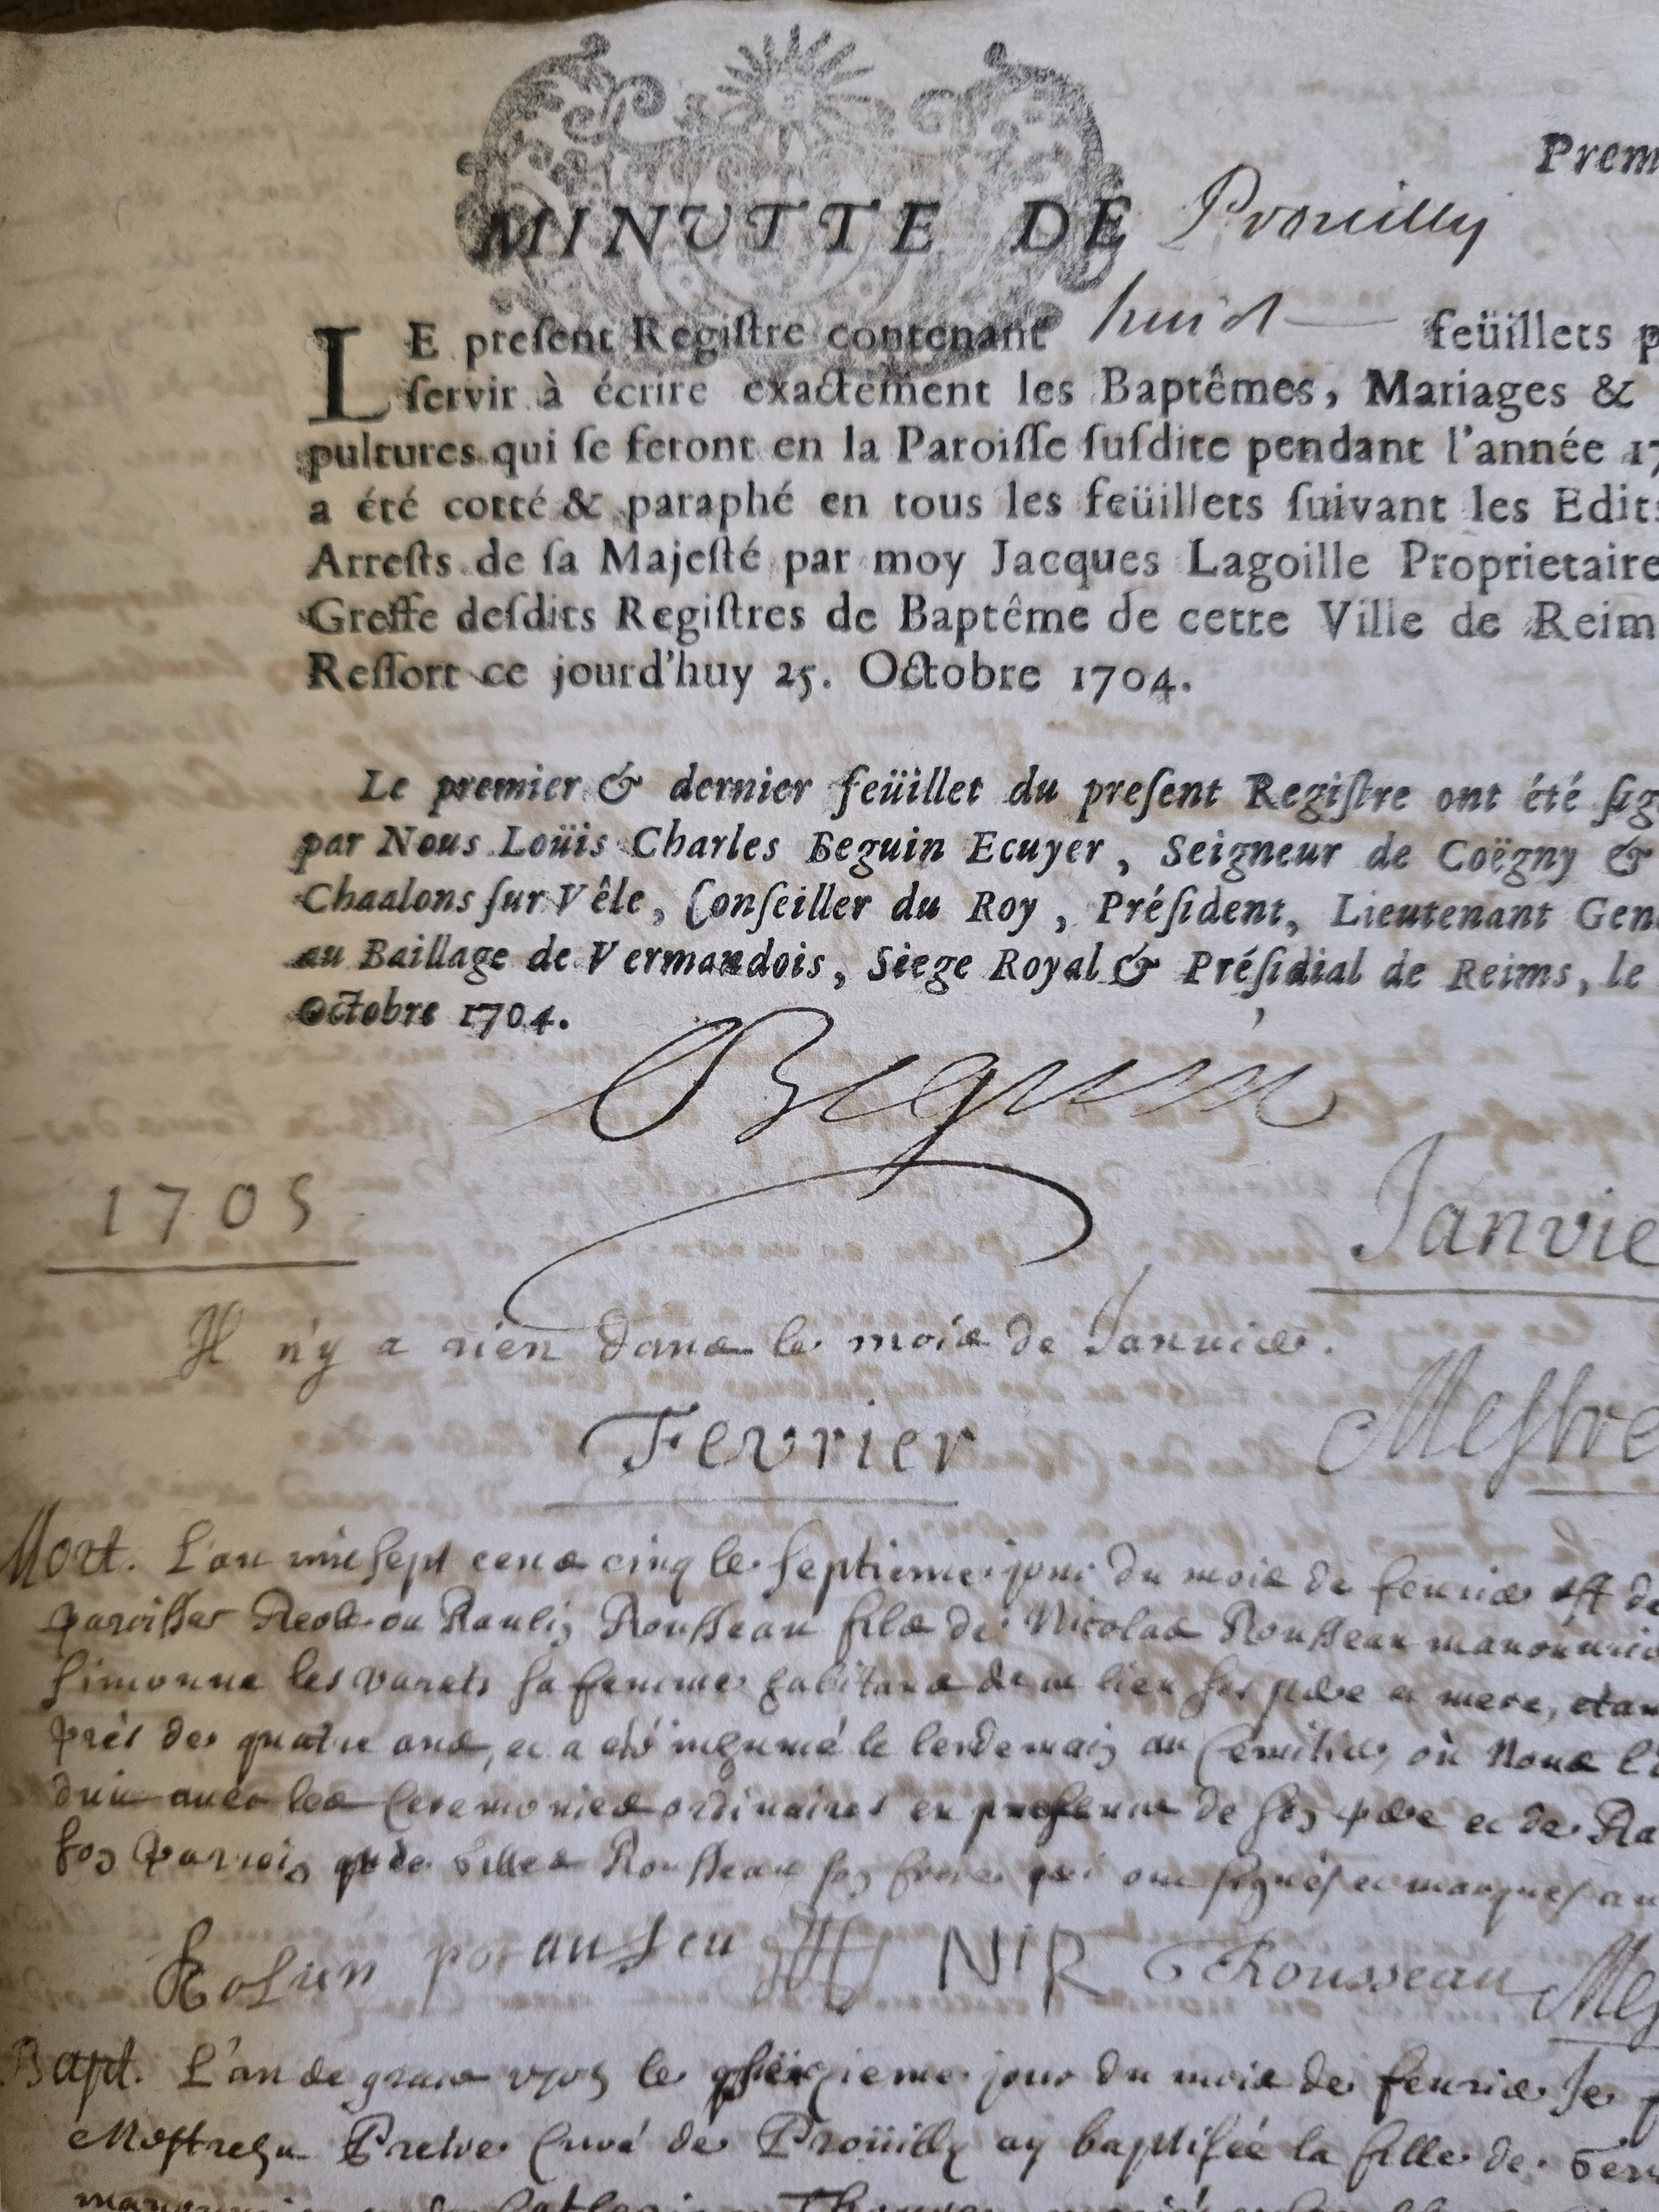 Prem
MINUTTE DE Prouilly
LE preſent Regiſtre contenant huict feüillets p
ſervir à écrire exactement les Baptêmes, Mariages &
pultures qui ſe feront en la Paroiſſe ſuſdite pendant l'année 17
a été cotté & paraphé en tous les feüillets ſuivant les Edits
Arreſts de ſa Majeſté par moy Jacques Lagoille Proprietaire
Greffe deſdits Regiſtres de Baptême de cette Ville de Reim
Reſſort ce jourd'huy 25. Octobre 1704.
Le premier & dernier feüillet du preſent Regiſtre ont été ſig
par Nous Loüis Charles Beguin Ecuyer, Seigneur de Coëgny &
Chaalons ſur Vêle, Conſeiller du Roy, Préſident, Lieutenant Gene
au Baillage de Vermandois, Siege Royal & Préſidial de Reims, le
Octobre 1704.
Beguin
1705 Janvie
Il n'y a rien dans le mois de Janvier.
Fevrier Meſtre
Mort. L'an mil ſept cens cinq le ſeptieme jour du mois de fevrier eſt de
paroiſſes Reole ou Raulin Rouſſeau fils de Nicolas Rouſſeau manouvrie
Simonne les varets ſa femme habitans de ce lieu ſes pere et mere, etan
près de quatre ans, et a eté inhumé le lendemain au Cemitiere, où Nous l'
duit avec les Ceremonies ordinaires en preſence de ſon pere et de Ra
ſon Parrein de Gilles Rouſſeau ſon frere qui ont ſignéſ et marqueſ au
NR Rousseau Meſ
Bapt. L'an de grace 1705 le jour du mois de fevrier Je
Meſtreſu Pretre Curé de Proüilly ay baptiſée la fille de